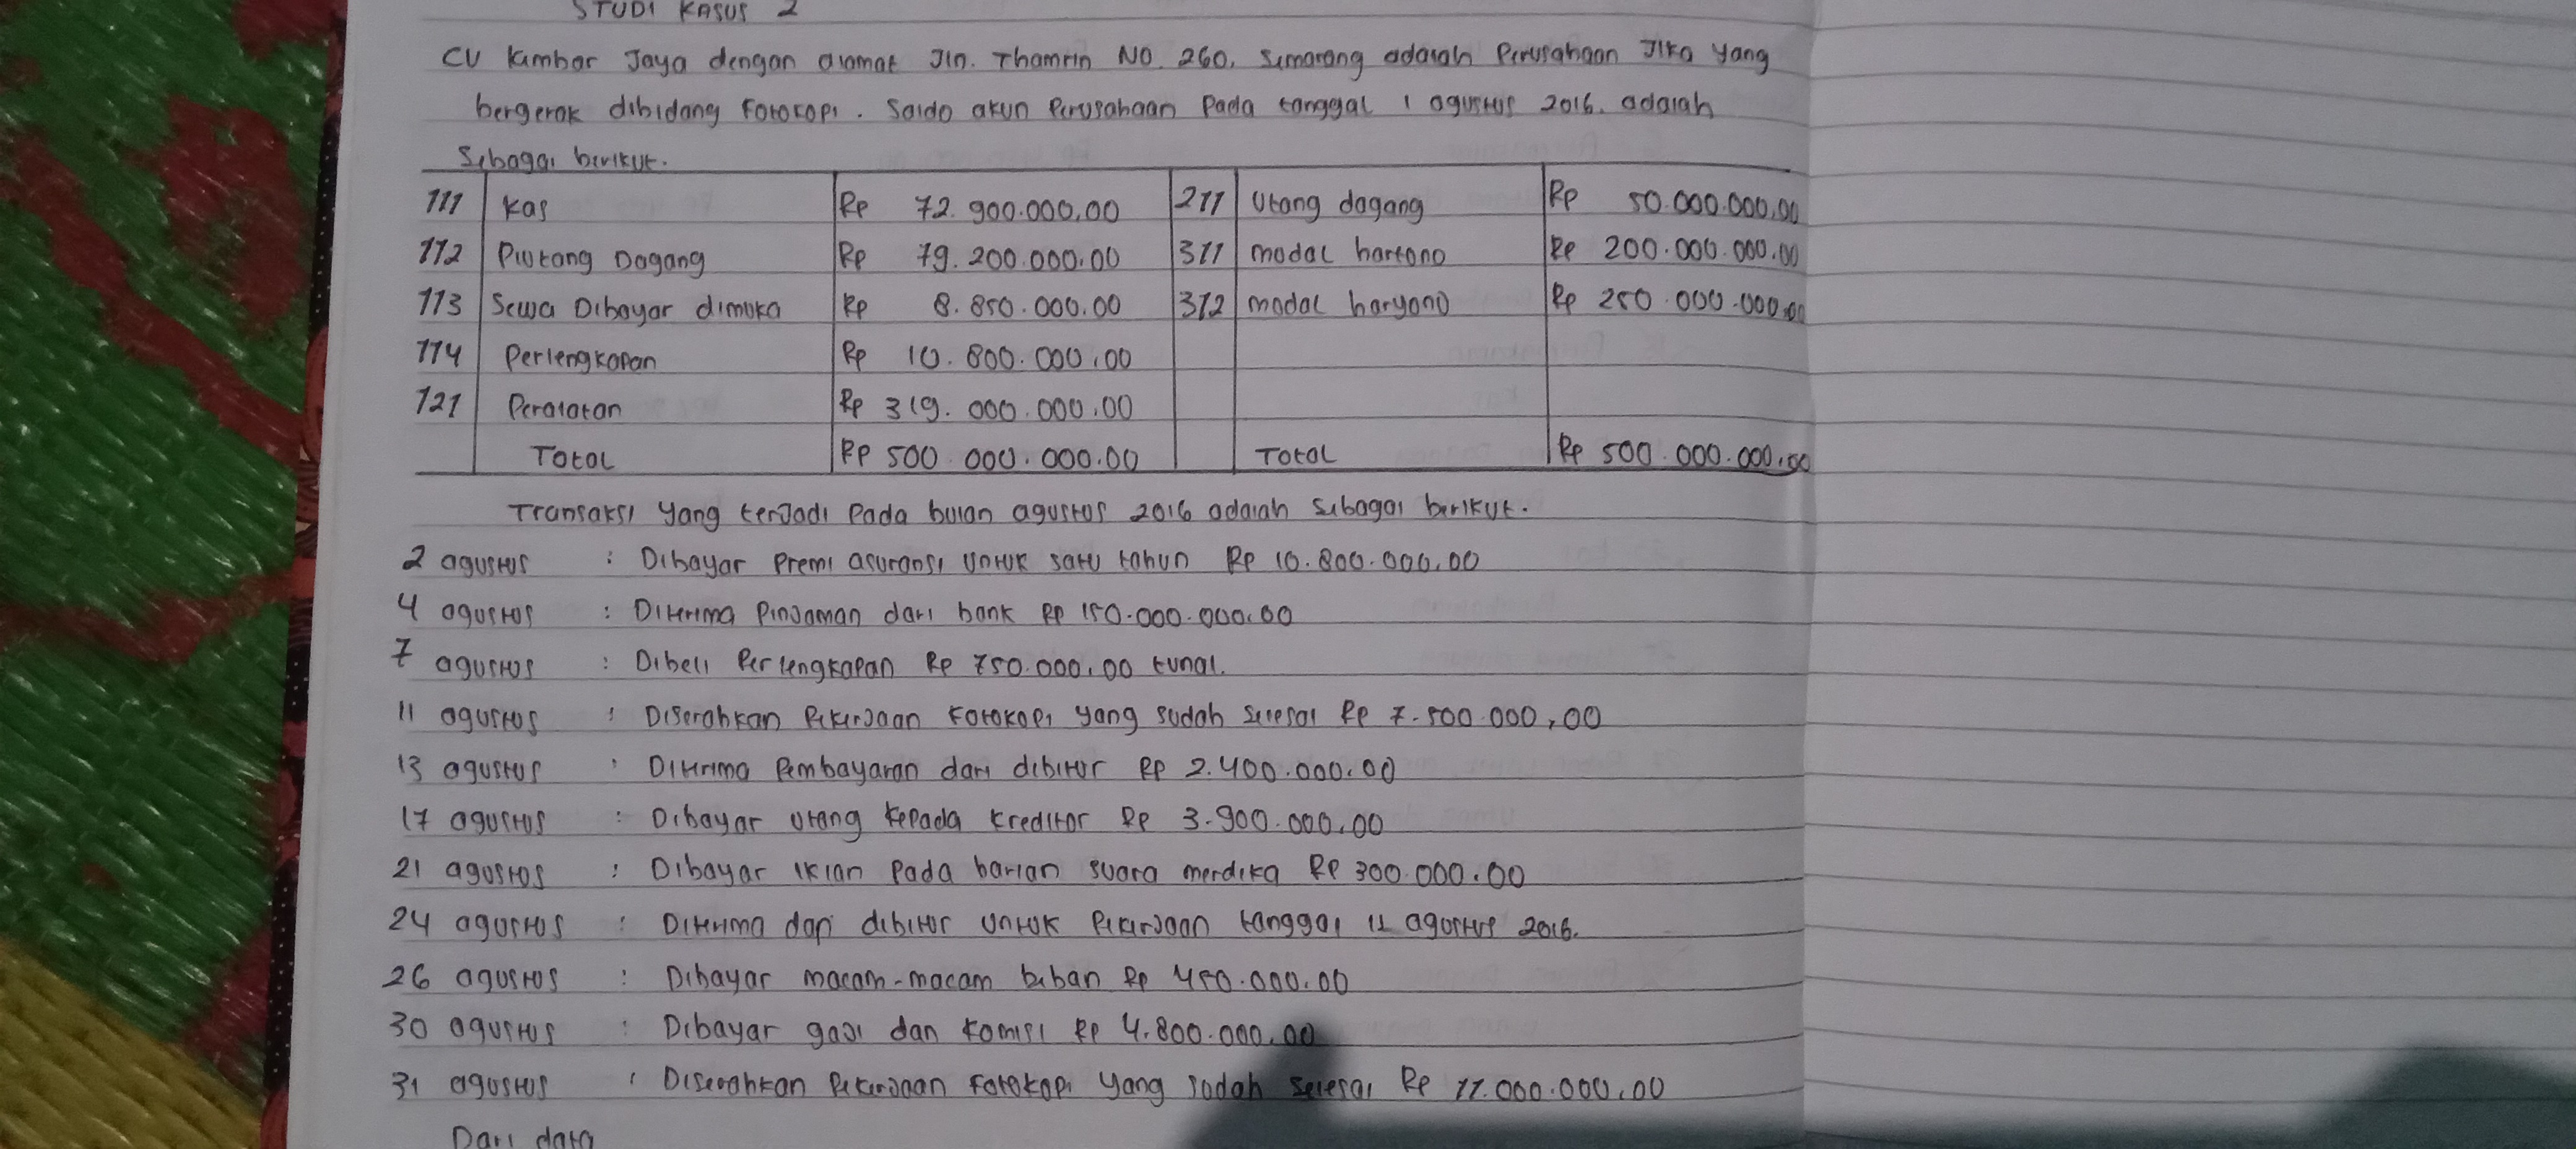 STUDI KASUS 2
CV Kembar Jaya dengan alamat Jln. Thamrin No 260, Semarang adalah Perusahaan Jika yang
bergerak dibidang Fotokopi. Saldo akun Perusahaan Pada tanggal 1 agustus 2016. adalah
Sebagai berikut.
111 Kas Rp 72.900.000,00 211 Utang dagang Rp 50.000.000,00
112 Piutang Dagang Rp 79.200.000,00 311 modal hartono Rp 200.000.000,00
113 Sewa Dibayar dimuka Rp 8.850.000,00 312 modal haryono Rp 250.000.000,00
114 Perlengkapan Rp 10.800.000,00
121 Peralatan Rp 319.000.000,00
Total Rp 500.000.000,00 Total Rp 500.000.000,00
Transaksi yang terjadi Pada bulan agustus 2016 adalah sebagai berikut.
2 agustus : Dibayar Premi asuransi untuk satu tahun Rp 10.800.000,00
4 agustus : Diterima Pinjaman dari bank Rp 150.000.000,00
7 agustus : Dibeli Perlengkapan Rp 750.000,00 tunai.
11 agustus : Diserahkan Pekerjaan Fotokopi yang sudah selesai Rp 7.500.000,00
13 agustus : Diterima Pembayaran dari debitur Rp 2.400.000,00
17 agustus : Dibayar utang kepada kreditor Rp 3.900.000,00
21 agustus : Dibayar iklan Pada harian suara merdeka Rp 300.000,00
24 agustus : Diterima dari debitur untuk Pekerjaan tanggal 11 agustus 2016.
26 agustus : Dibayar macam-macam beban Rp 450.000,00
30 agustus : Dibayar gaji dan komisi Rp 4.800.000,00
31 agustus : Diserahkan Pekerjaan Fotokopi yang sudah selesai Rp 11.000.000,00
Dari data